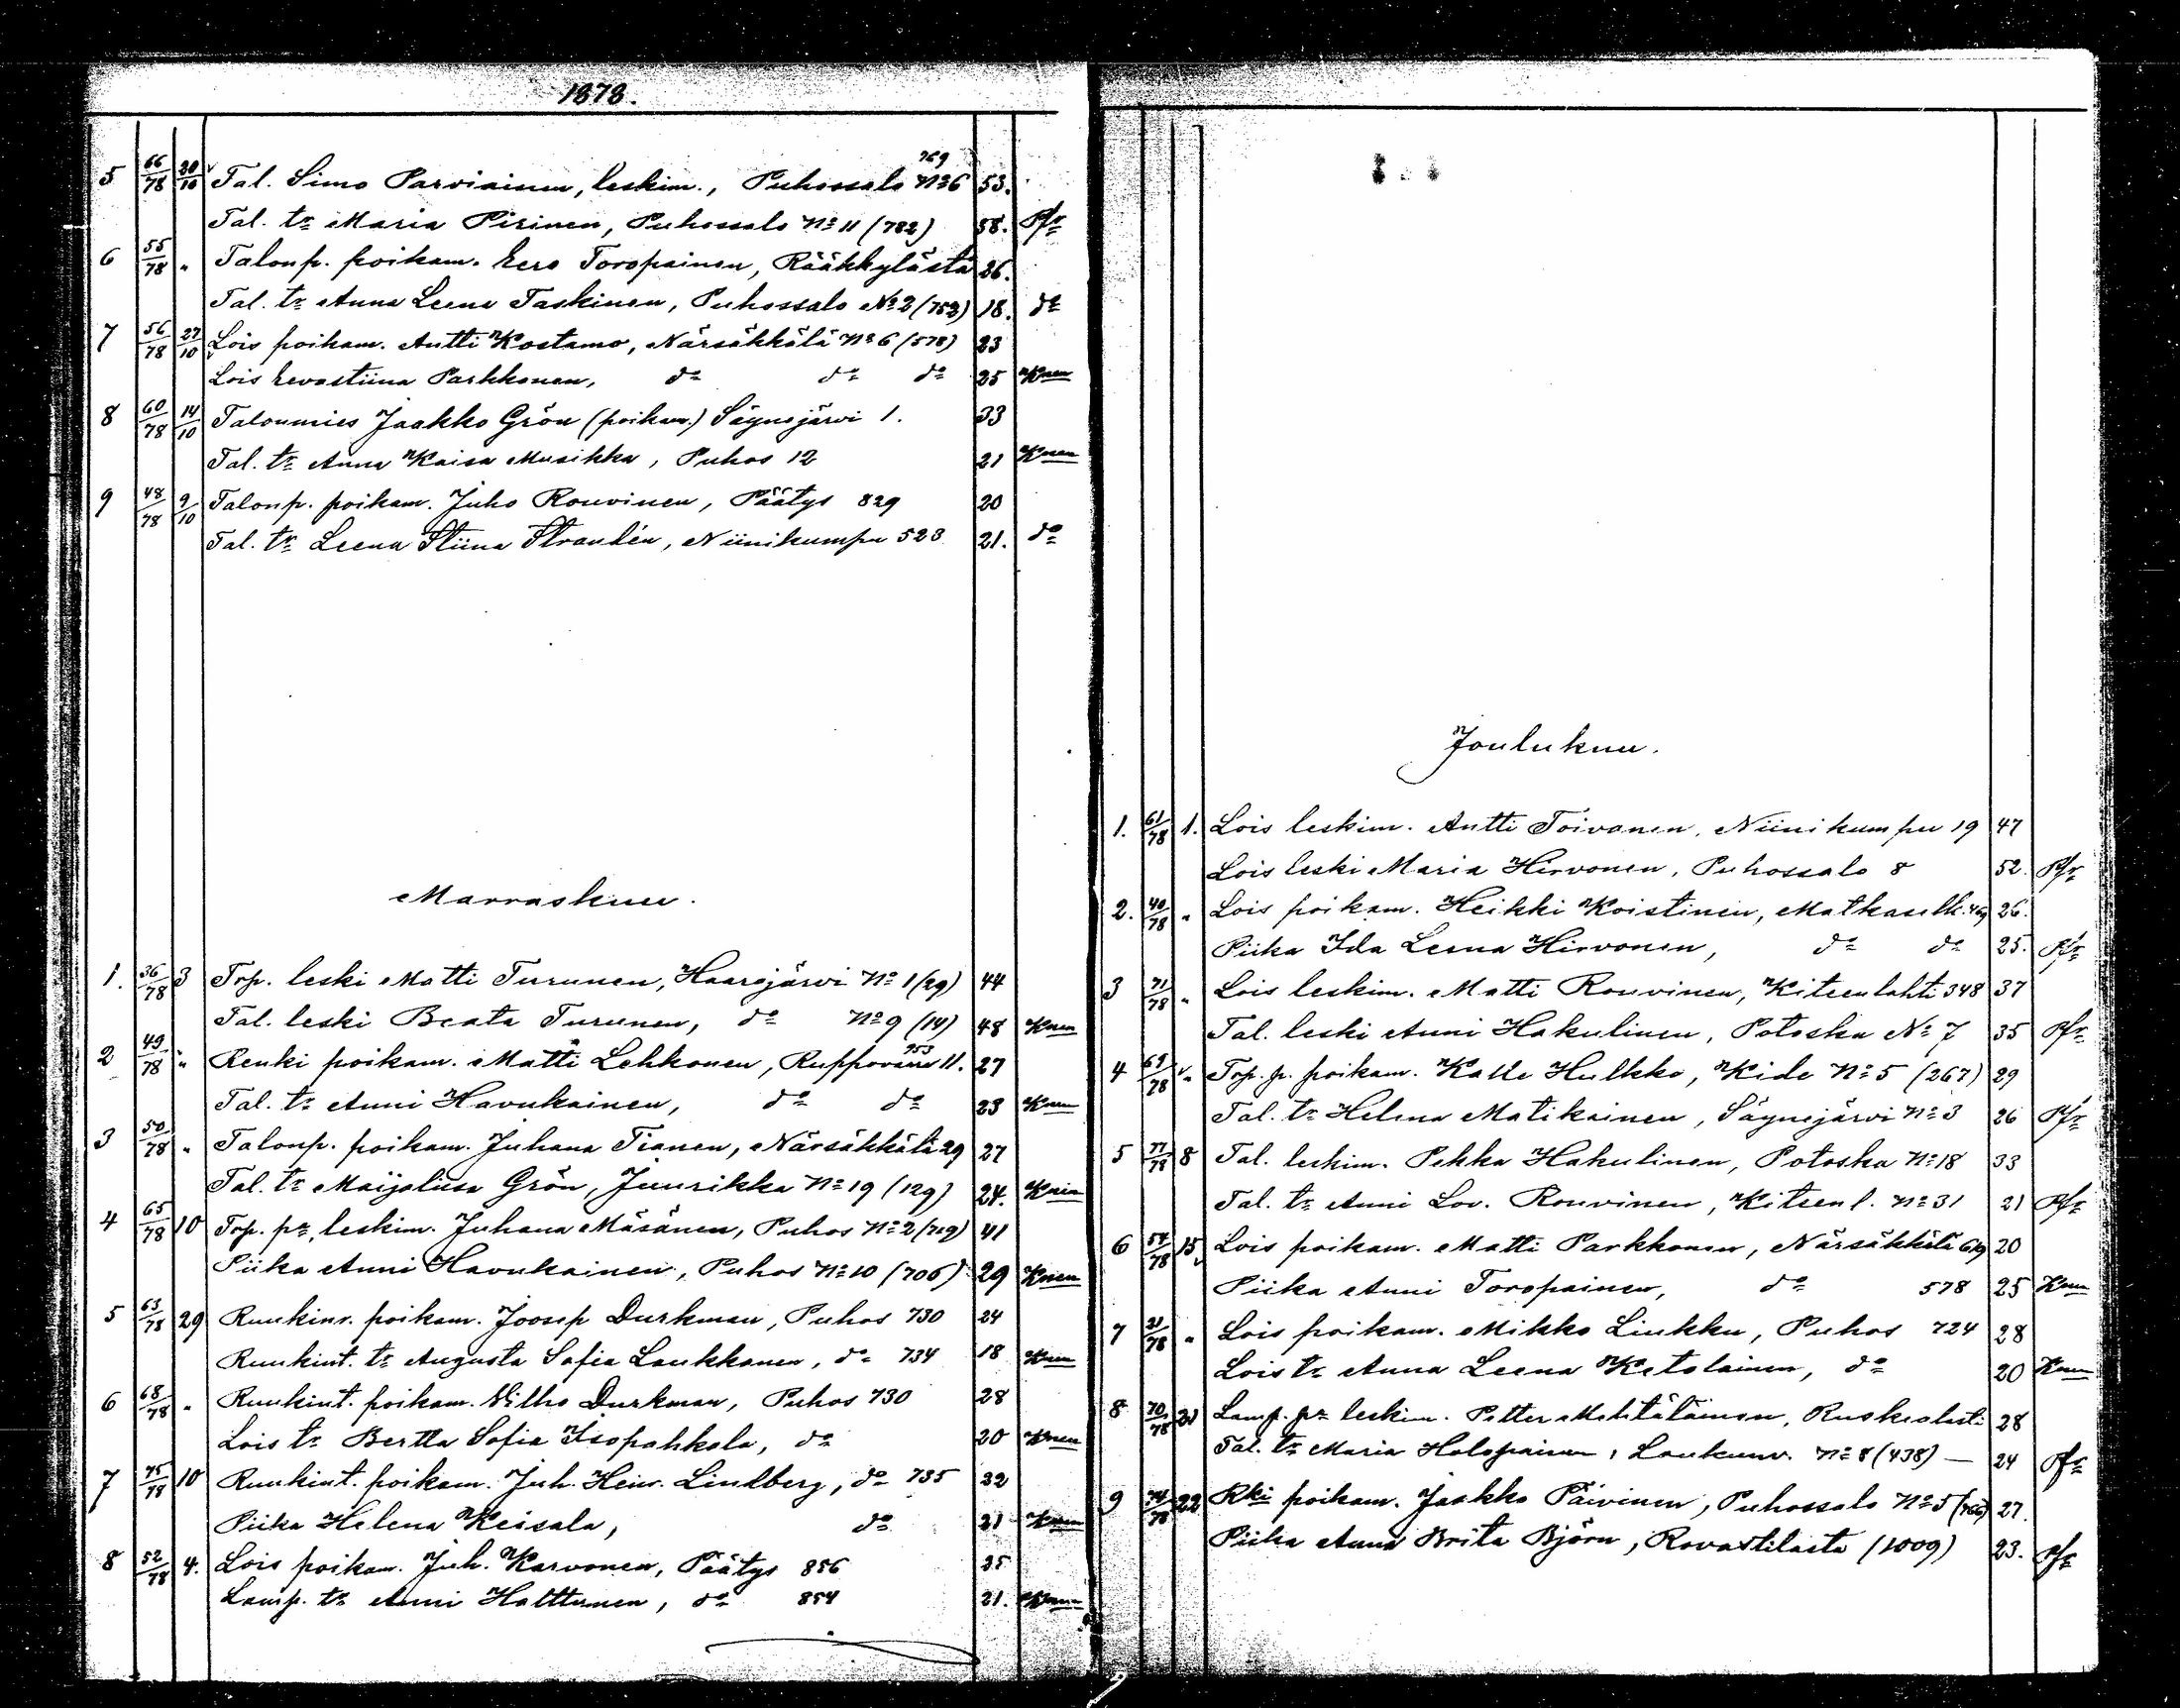 1878.
5 66/78 20/10 Tal. Simo Parviainen, leskim., Puhossalo No 6 769 53.
Tal. tr Maria Pirinen, Puhossalo No 11 (782) 58. Pfr
6 55/78 " Talonp. poikam. Eero Toropainen, Rääkkylästä 26.
Tal. tr Anna Leena Taskinen, Puhossalo No 2 (752) 18. do
7 56/78 27/10 Lois poikam. Antti Kostamo, Närsäkkälä No 6 (578) 23
Lois Eevastiina Parkkonen, do do do 25 Knen
8 60/78 14/10 Talonmies Jaakko Grön (poikam.) Säynejärvi 1. 33
Tal. tr Anna Kaisa Musikka, Puhos 12 21 Knen
9 48/78 9/10 Talonp. poikam. Juho Rouvinen, Päätys 829 20
Tal. tr Leena Stiina Strandén, Niinikumpu 523 21. do
Marraskuu.
1. 36/78 3 Torp. leski Matti Turunen, Haarajärvi No 1 (29) 44
Tal. leski Beata Turunen, do No 9 (14) 48 Knen
2 49/78 " Renki poikam. Matti Lehkonen, Ruppovaara 11. 953 27
Tal. tr Anni Havukainen, do do 23 Knen
3 50/78 " Talonp. poikam. Juhana Tianen, Närsäkkälä 29 27
Tal. tr Maijaliisa Grön, Juurikka No 19 (129) 24. Knen
4 65/78 10 Torp. pr, leskim. Juhana Mäsänen, Puhos No 2 (719) 41
Piika Anni Havukainen, Puhos No 10 (706) 29 Knen
5 63/78 29 Ruukinr. poikam. Joosep Durkman, Puhos 730 24
Ruukint. tr Augusta Sofia Laukkanen, do 734 18 Knen
6 68/78 " Ruukint. poikam. Vilho Durkman, Puhos 730 28
Lois tr Bertta Sofia Isopahkala, do 20 Knen
7 75/78 10 Ruukint. poikam. Juh. Heinr. Lindberg, do 735 22
Piika Helena Keisala, do 21 Knen
8 52/78 4. Lois poikam. Juh. Karvonen, Päätys 856 25
Lamp. tr Anni Halttunen, do 854 21. Knen
Joulukuu.
1. 61/78 1. Lois leskim. Antti Toivanen, Niinikumpu 19 47
Lois leski Maria Hirvonen, Puhossalo 8 52. Pfr
2. 40/78 " Lois poikam. Heikki Koistinen, Matkaselk. 26.
Piika Ida Leena Hirvonen, do do 25. Pfr
3 71/78 " Lois leskim. Matti Rouvinen, Kiteenlahti 348 37
Tal. leski Anni Hakulinen, Potoska No 7 35 Pfr
4 69/78 " Torp. p. poikam. Kalle Hulkko, Kide No 5 (267) 29
Tal. tr Helena Matikainen, Säynejärvi No 3 26 Pfr
5 77/78 8 Tal. leskim. Pekka Hakulinen, Potoska No 18 33
Tal. tr Anni Lov. Rouvinen, Kiteen l. No 31 21 Pfr
6 54/78 15 Lois poikam. Matti Parkkonen, Närsäkkälä 20
Piika Anni Toropainen, do 578 25 Knen
7 31/78 " Lois poikam. Mikko Liukku, Puhos 724 28
Lois tr Anna Leena Ketolainen, do 20 Knen
8 70/78 21 Lamp. pr leskim. Petter Mehtätäinen, Ruskealasti 28
Tal. tr Maria Holopainen, Loukunv. No 8 (438) — 24 Pfr
9 74/78 22 Rki poikam. Jaakko Päivinen, Puhossalo No 5 (766) 27.
Piika Anna Brita Björn, Rovastilasta (1009) 23. Pfr